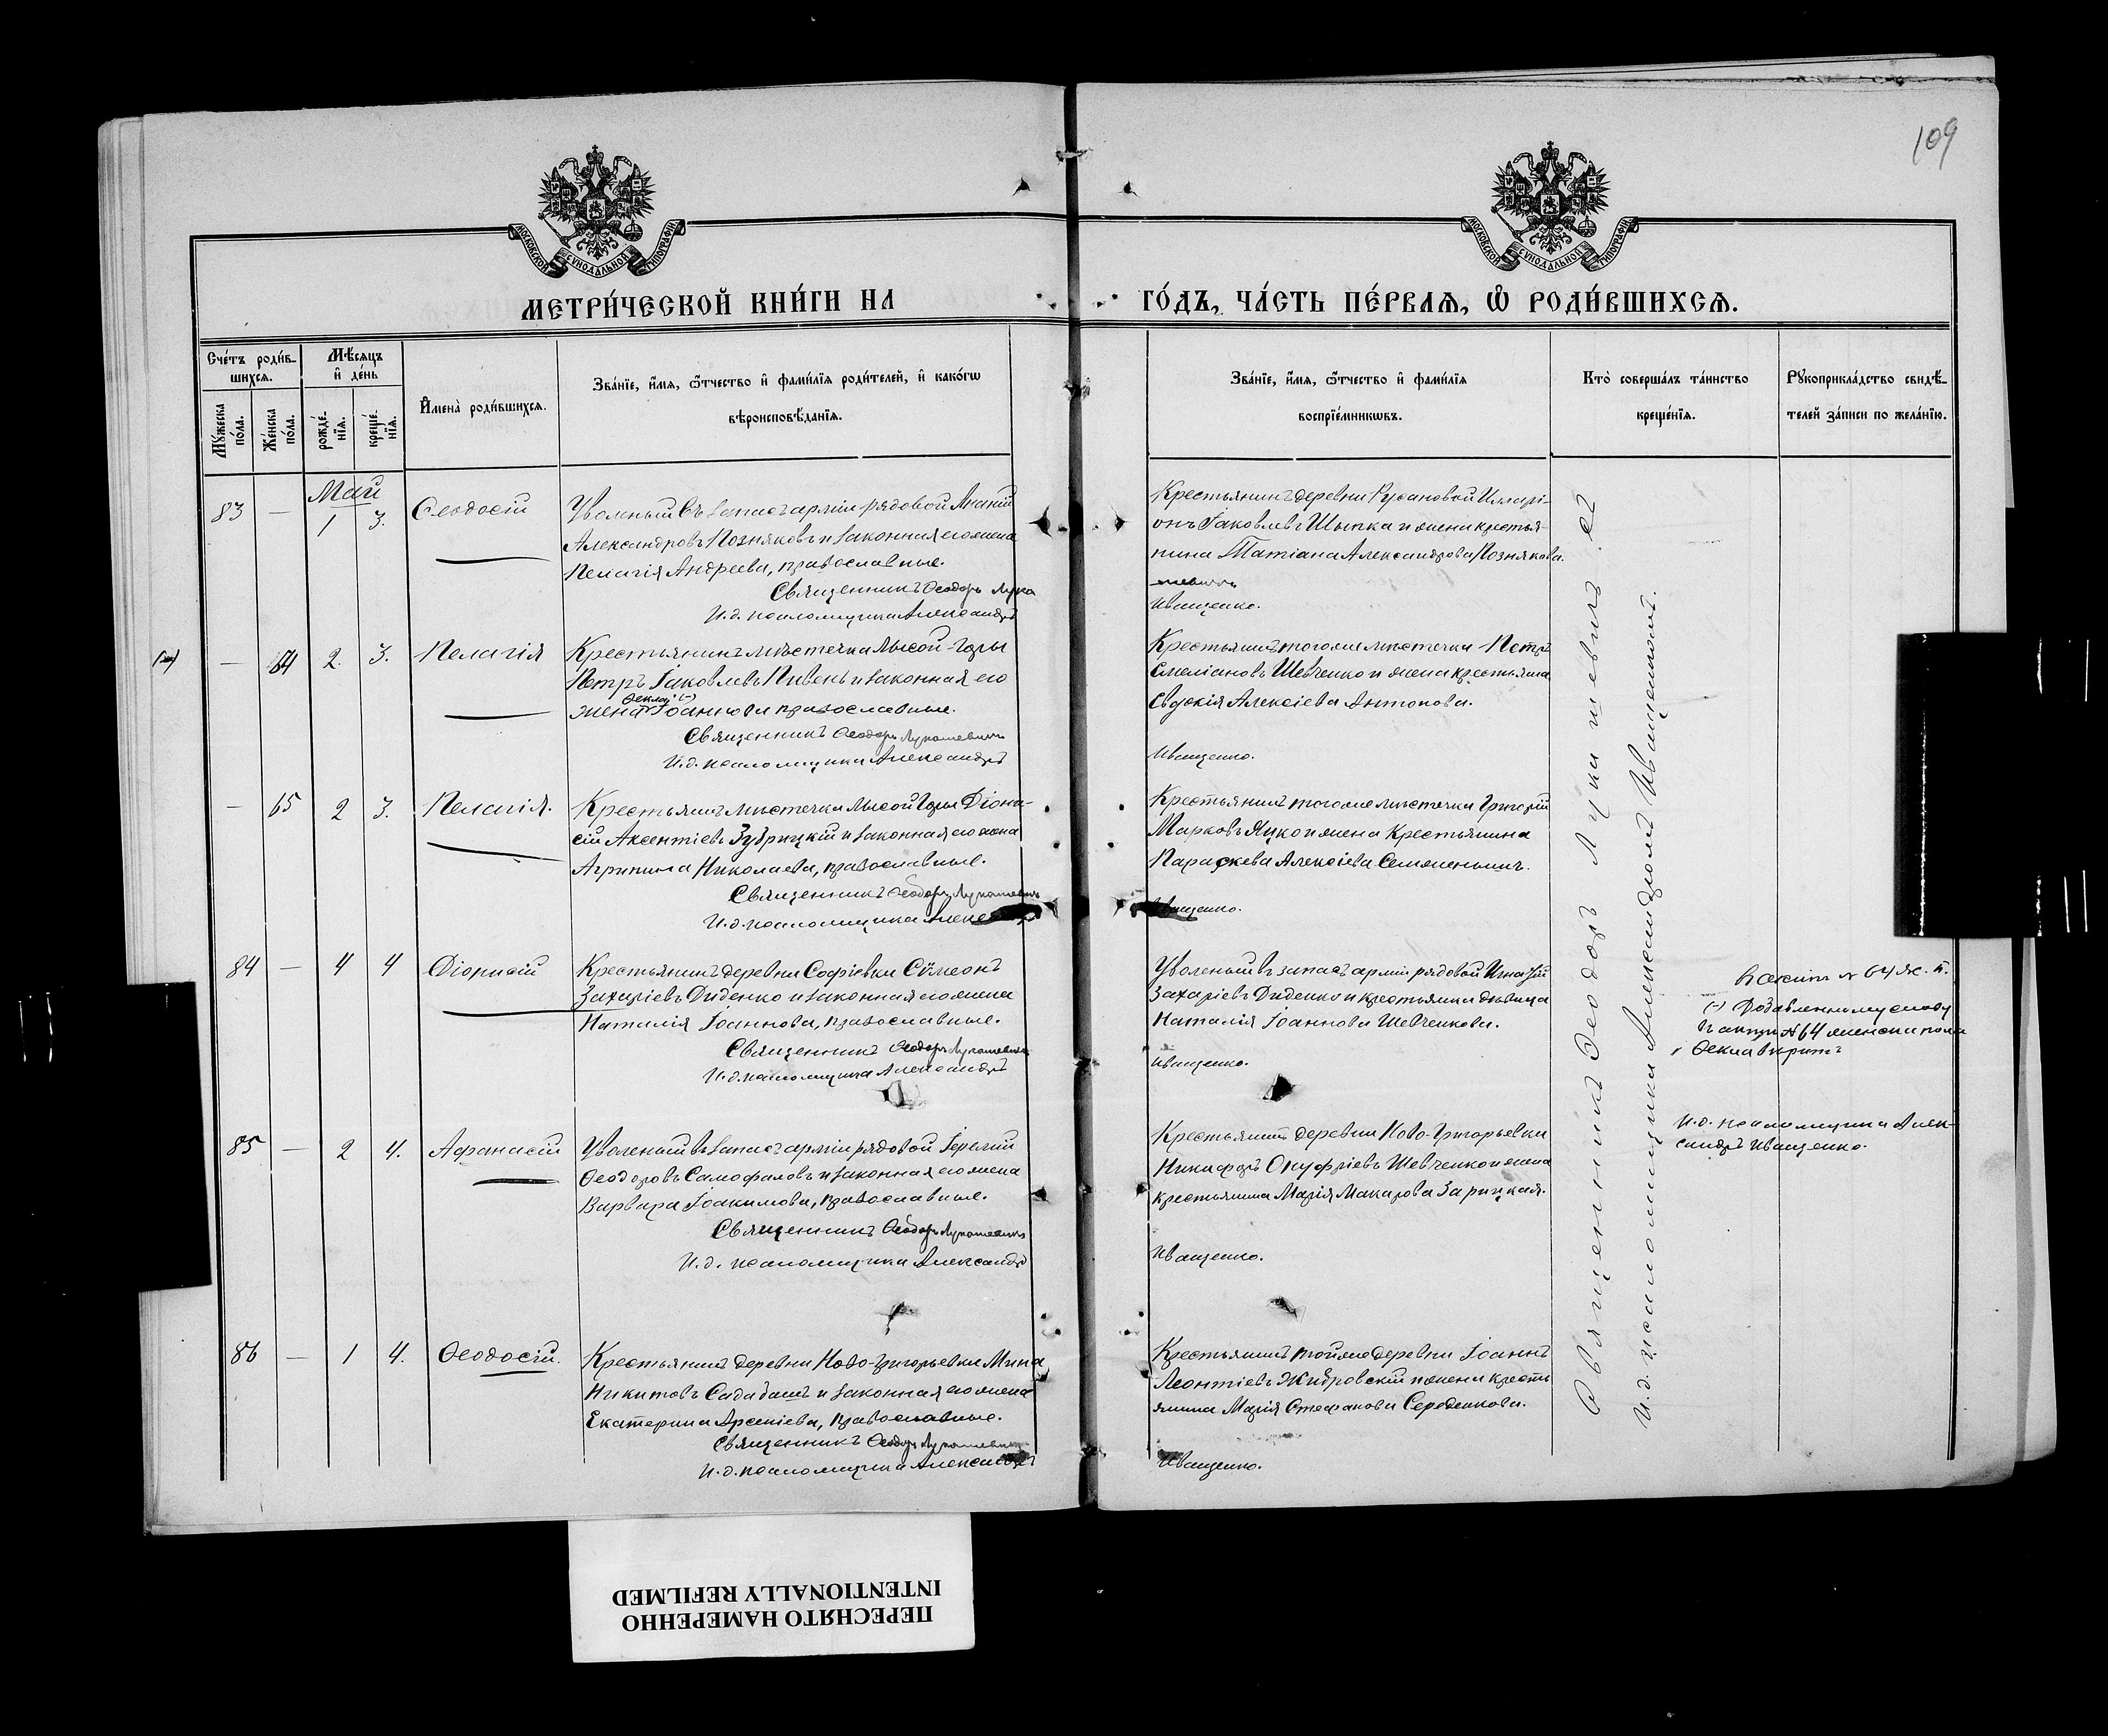 109
МОСКОВСКОЙ СУНОДАЛЬНОЙ ТИПОГРАФІИ
МОСКОВСКОЙ СУНОДАЛЬНОЙ ТИПОГРАФІИ
МЕТРИ́ЧЕСКОЙ КНИ́ГИ НА
ГО́ДЪ, ЧА́СТЬ ПЕ́РВАѦ, Ѡ҆ РОДИ́ВШИХСѦ.
Сче́тъ роди́в-
шихсѧ.
Мѣ́сѧцъ
и҆ де́нь
Му́жеска
по́ла.
Же́нска
по́ла.
рожде́-
нїѧ.
креще́-
нїѧ.
И҆мена̀ роди́вшихсѧ.
Зва́нїе, и҆́мѧ, ѻ҆́тчество и҆ фами́лїѧ роди́телей, и҆ како́гѡ
вѣроисповѣ́данїѧ.
Зва́нїе, и҆́мѧ, ѻ҆́тчество и҆ фами́лїѧ
воспрїе́мникѡвъ.
Кто̀ соверша́лъ та́инство
креще́нїѧ.
Рꙋкоприкла́дство свидѣ́-
телей за́писи по жела́нїю.
Май
83 — 1 3. Ѳеодосій
Уволеный въ запасъ арміи рядовой Ананій
Александровъ Позняковъ и законная его жена
Пелагія Андреева, православные.
Священникъ Ѳеодоръ Лука
И.д. псаломщика Александръ
Крестьянинъ деревни Русановой Иларі-
онъ Іаковлевъ Шыпка и жена крестья-
нина Татіана Александрова Познякова.
шевичъ
Иващенко.
(–) — 64 2. 3. Пелагія
Крестьянинъ мѣстечка Лысой-Горы
Петръ Іаковлевъ Пивень и законная его
Ѳекла (-)
жена Іоаннова православные.
Священникъ Ѳеодоръ Лукашевичъ
И.д. псаломщика Александръ
Крестьянинъ тогоже мѣстечка Петръ
Емеліановъ Шевченко и жена крестьянина
Евдокія Алексіева Антонова.
Иващенко.
— 65 2 3. Пелагія.
Крестьянинъ мѣстечка Лысой Горы Діони-
сій Аксентіевъ Зубрицкій и законная его жена
Агрипина Николаева, православные.
Священникъ Ѳеодоръ Лукашевичъ
И.д. псаломщика Алекс
Крестьянинъ тогоже мѣстечка Григорій
Марковъ Яцко и жена Крестьянина
Параскева Алексіева
Иващенко.
84 — 4 4 Діонисій
Крестьянинъ деревни Софіевки Сѵмеонъ
Захаріевъ Диденко и законная его жена
Наталія Іоаннова, православные.
Священникъ Ѳеодоръ Лукашевичъ
И.д. псаломщика Александръ
Уволеный въ запасъ арміи рядовой Игнатій
Захаріевъ Диденко и крестьянка дѣвица
Наталія Іоаннова Шевченкова.
Иващенко.
№ 64 ж. п.
(-) Добавленному слову
въ актѣ №64 женска пола
Ѳекла вѣрить
И.д. псаломщика Алек-
сандръ Иващенко.
85 — 2 4. Афанасій
Уволеный въ запасъ арміи рядовой Іеремій
Ѳеодоровъ Самофаловъ и законная его жена
Варвара Іоакимова, православные.
Священникъ Ѳеодоръ Лукашевичъ
И.д. псаломщика Александръ
Крестьянинъ деревни Ново-Григорьевки
Никифоръ Онуфріевъ Шевченко и жена
крестьянина Марія Макарова Зарицкая.
Иващенко.
86 — 1 4. Ѳеодосій.
Крестьянинъ деревни Ново-Григорьевки Мина
Никитовъ Садабашъ и законная его жена
Екатерина Арсеніева, православные.
Священникъ Ѳеодоръ Лукашевичъ
И.д. псаломщика Александръ
Крестьянинъ тойже деревни Іоаннъ
Леонтіевъ Жибровскій и жена кресть
янина Марія Стефанова Середенкова.
Иващенко.
Священникъ Ѳеодоръ Лукашевичъ съ
и.д. псаломщика Александромъ Иващенкомъ.
ПЕРЕСНЯТО НАМЕРЕННО
INTENTIONALLY REFILMED